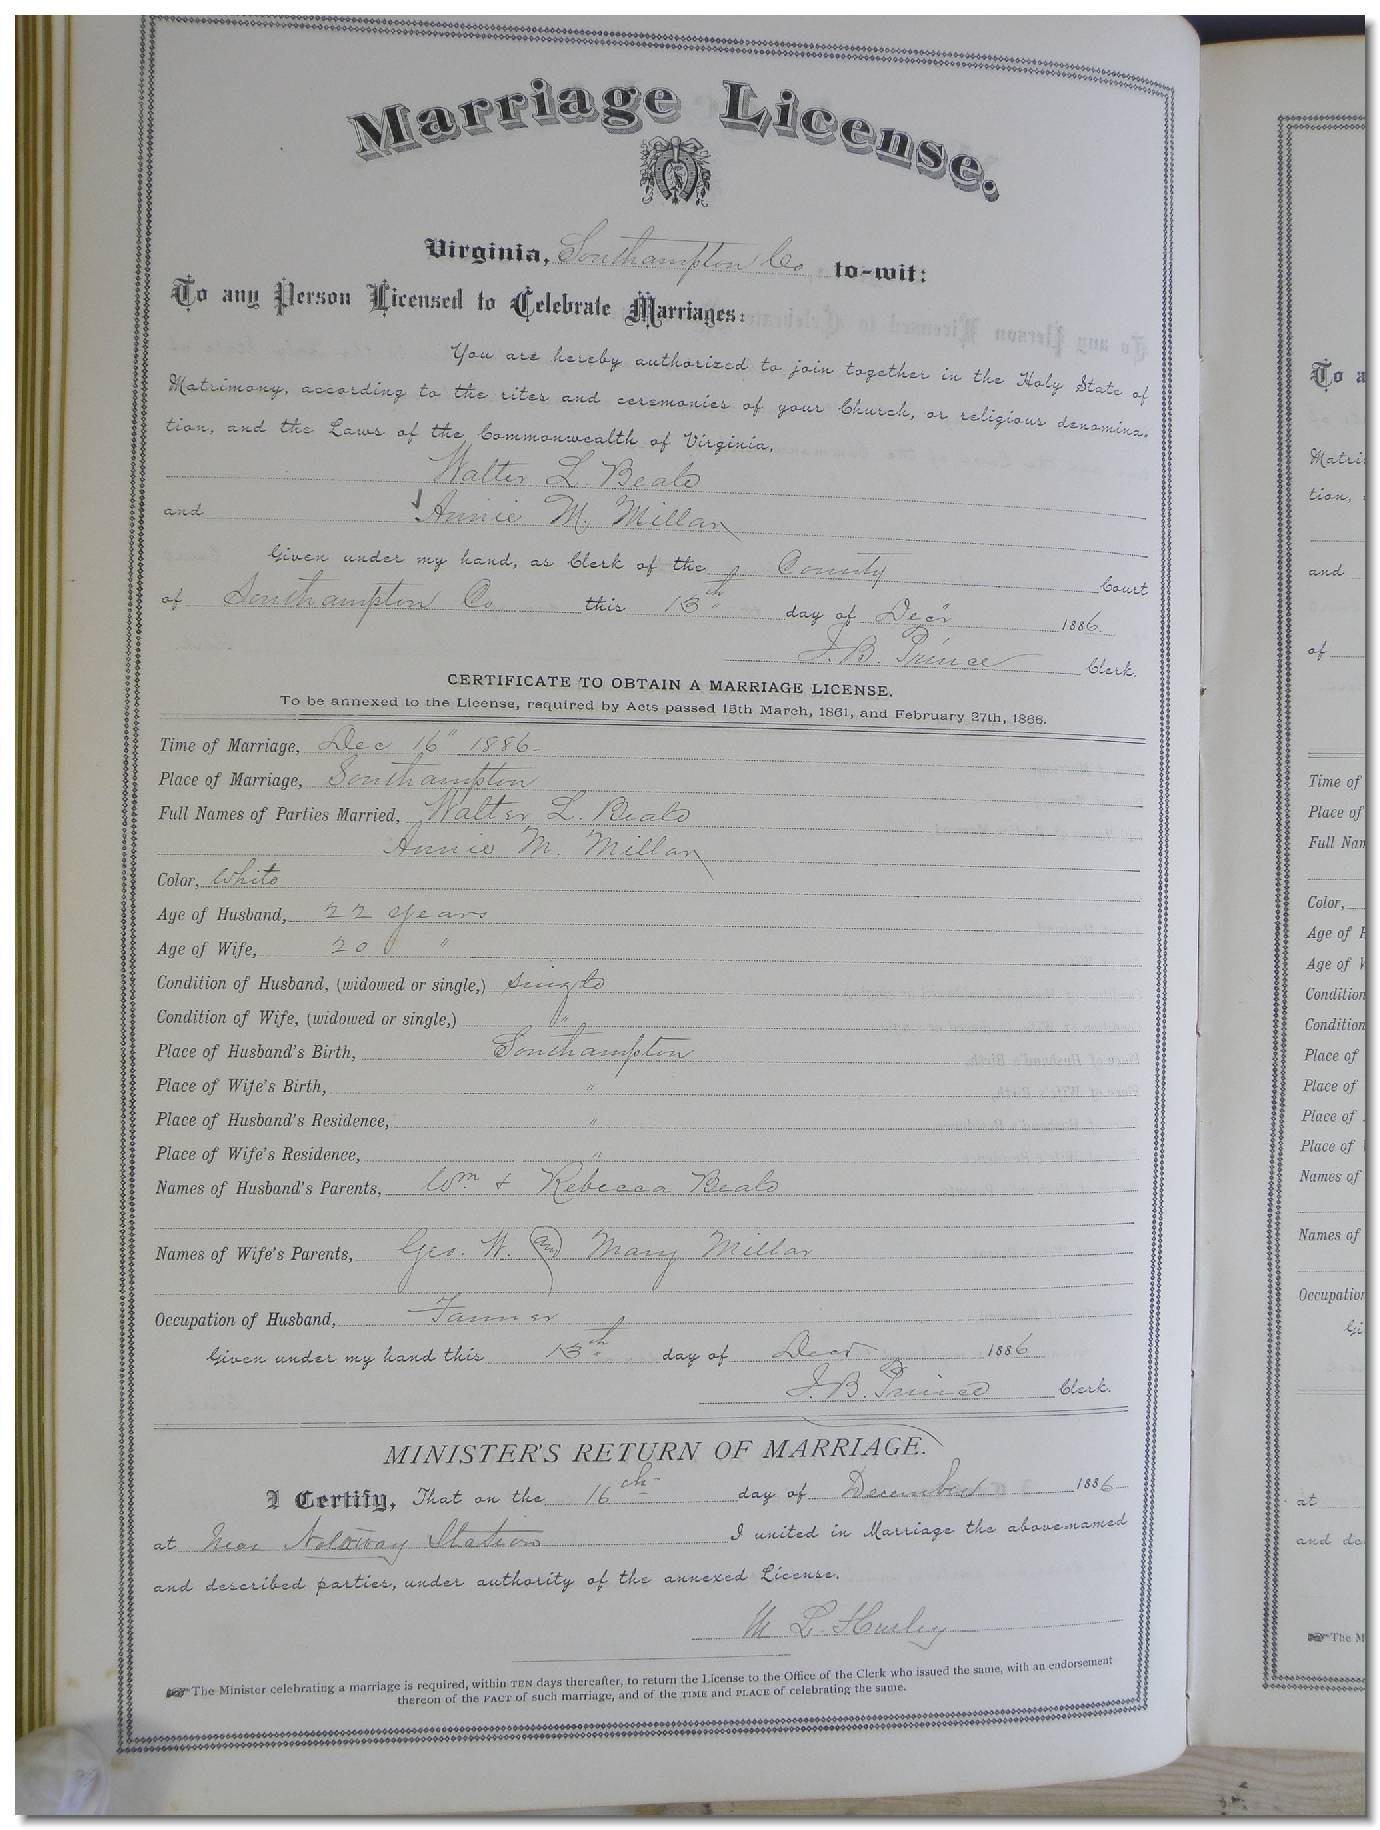 Marriage License.
Virginia, Southampton Co to-wit:
To any Person Licensed to Celebrate Marriages:
You are hereby authorized to join together in the Holy State of
Matrimony, according to the rites and ceremonies of your Church, or religious denomina-
tion, and the Laws of the Commonwealth of Virginia,
Walter L Beale
and Annie M. Millar
Given under my hand, as Clerk of the County Court
of Southampton Co this 13th day of Decr 1886.
J. B. Prince Clerk.
CERTIFICATE TO OBTAIN A MARRIAGE LICENSE.
To be annexed to the License, required by Acts passed 15th March, 1861, and February 27th, 1866.
Time of Marriage, Dec 16" 1886
Place of Marriage, Southampton
Full Names of Parties Married, Walter L. Beale
Annie M Millar
Color, White
Age of Husband, 22 years
Age of Wife, 20 "
Condition of Husband, (widowed or single,) single
Condition of Wife, (widowed or single,) "
Place of Husband's Birth, Southampton
Place of Wife's Birth, "
Place of Husband's Residence, "
Place of Wife's Residence, "
Names of Husband's Parents, Wm & Rebecca Beale
Names of Wife's Parents, Geo. W. and Mary Millar
Occupation of Husband, Farmer
Given under my hand this 13th day of Decr 1886
J. B. Prince Clerk.
MINISTER'S RETURN OF MARRIAGE.
I Certify, That on the 16th day of December 1886
at Near Station I united in Marriage the above-named
and described parties, under authority of the annexed License.
M L. Hurley
The Minister celebrating a marriage is required, within TEN days thereafter, to return the License to the Office of the Clerk who issued the same, with an endorsement
thereon of the FACT of such marriage, and of the TIME and PLACE of celebrating the same.
To a
Matri
tion,
and
of
Time of
Place of
Full Nam
Color,
Age of H
Age of W
Condition
Condition
Place of
Place of
Place of
Place of
Names of
Names of
Occupation
Gi
at
and de
The M